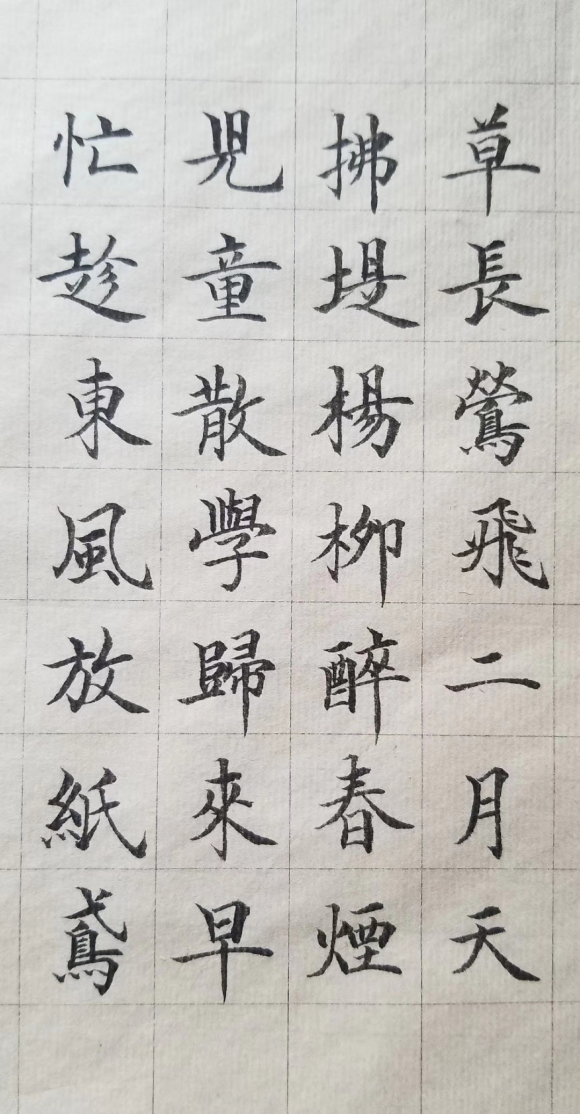 草長鶯飛二月天
拂堤楊柳醉春煙
兒童散學歸來早
忙趁東風放紙鳶